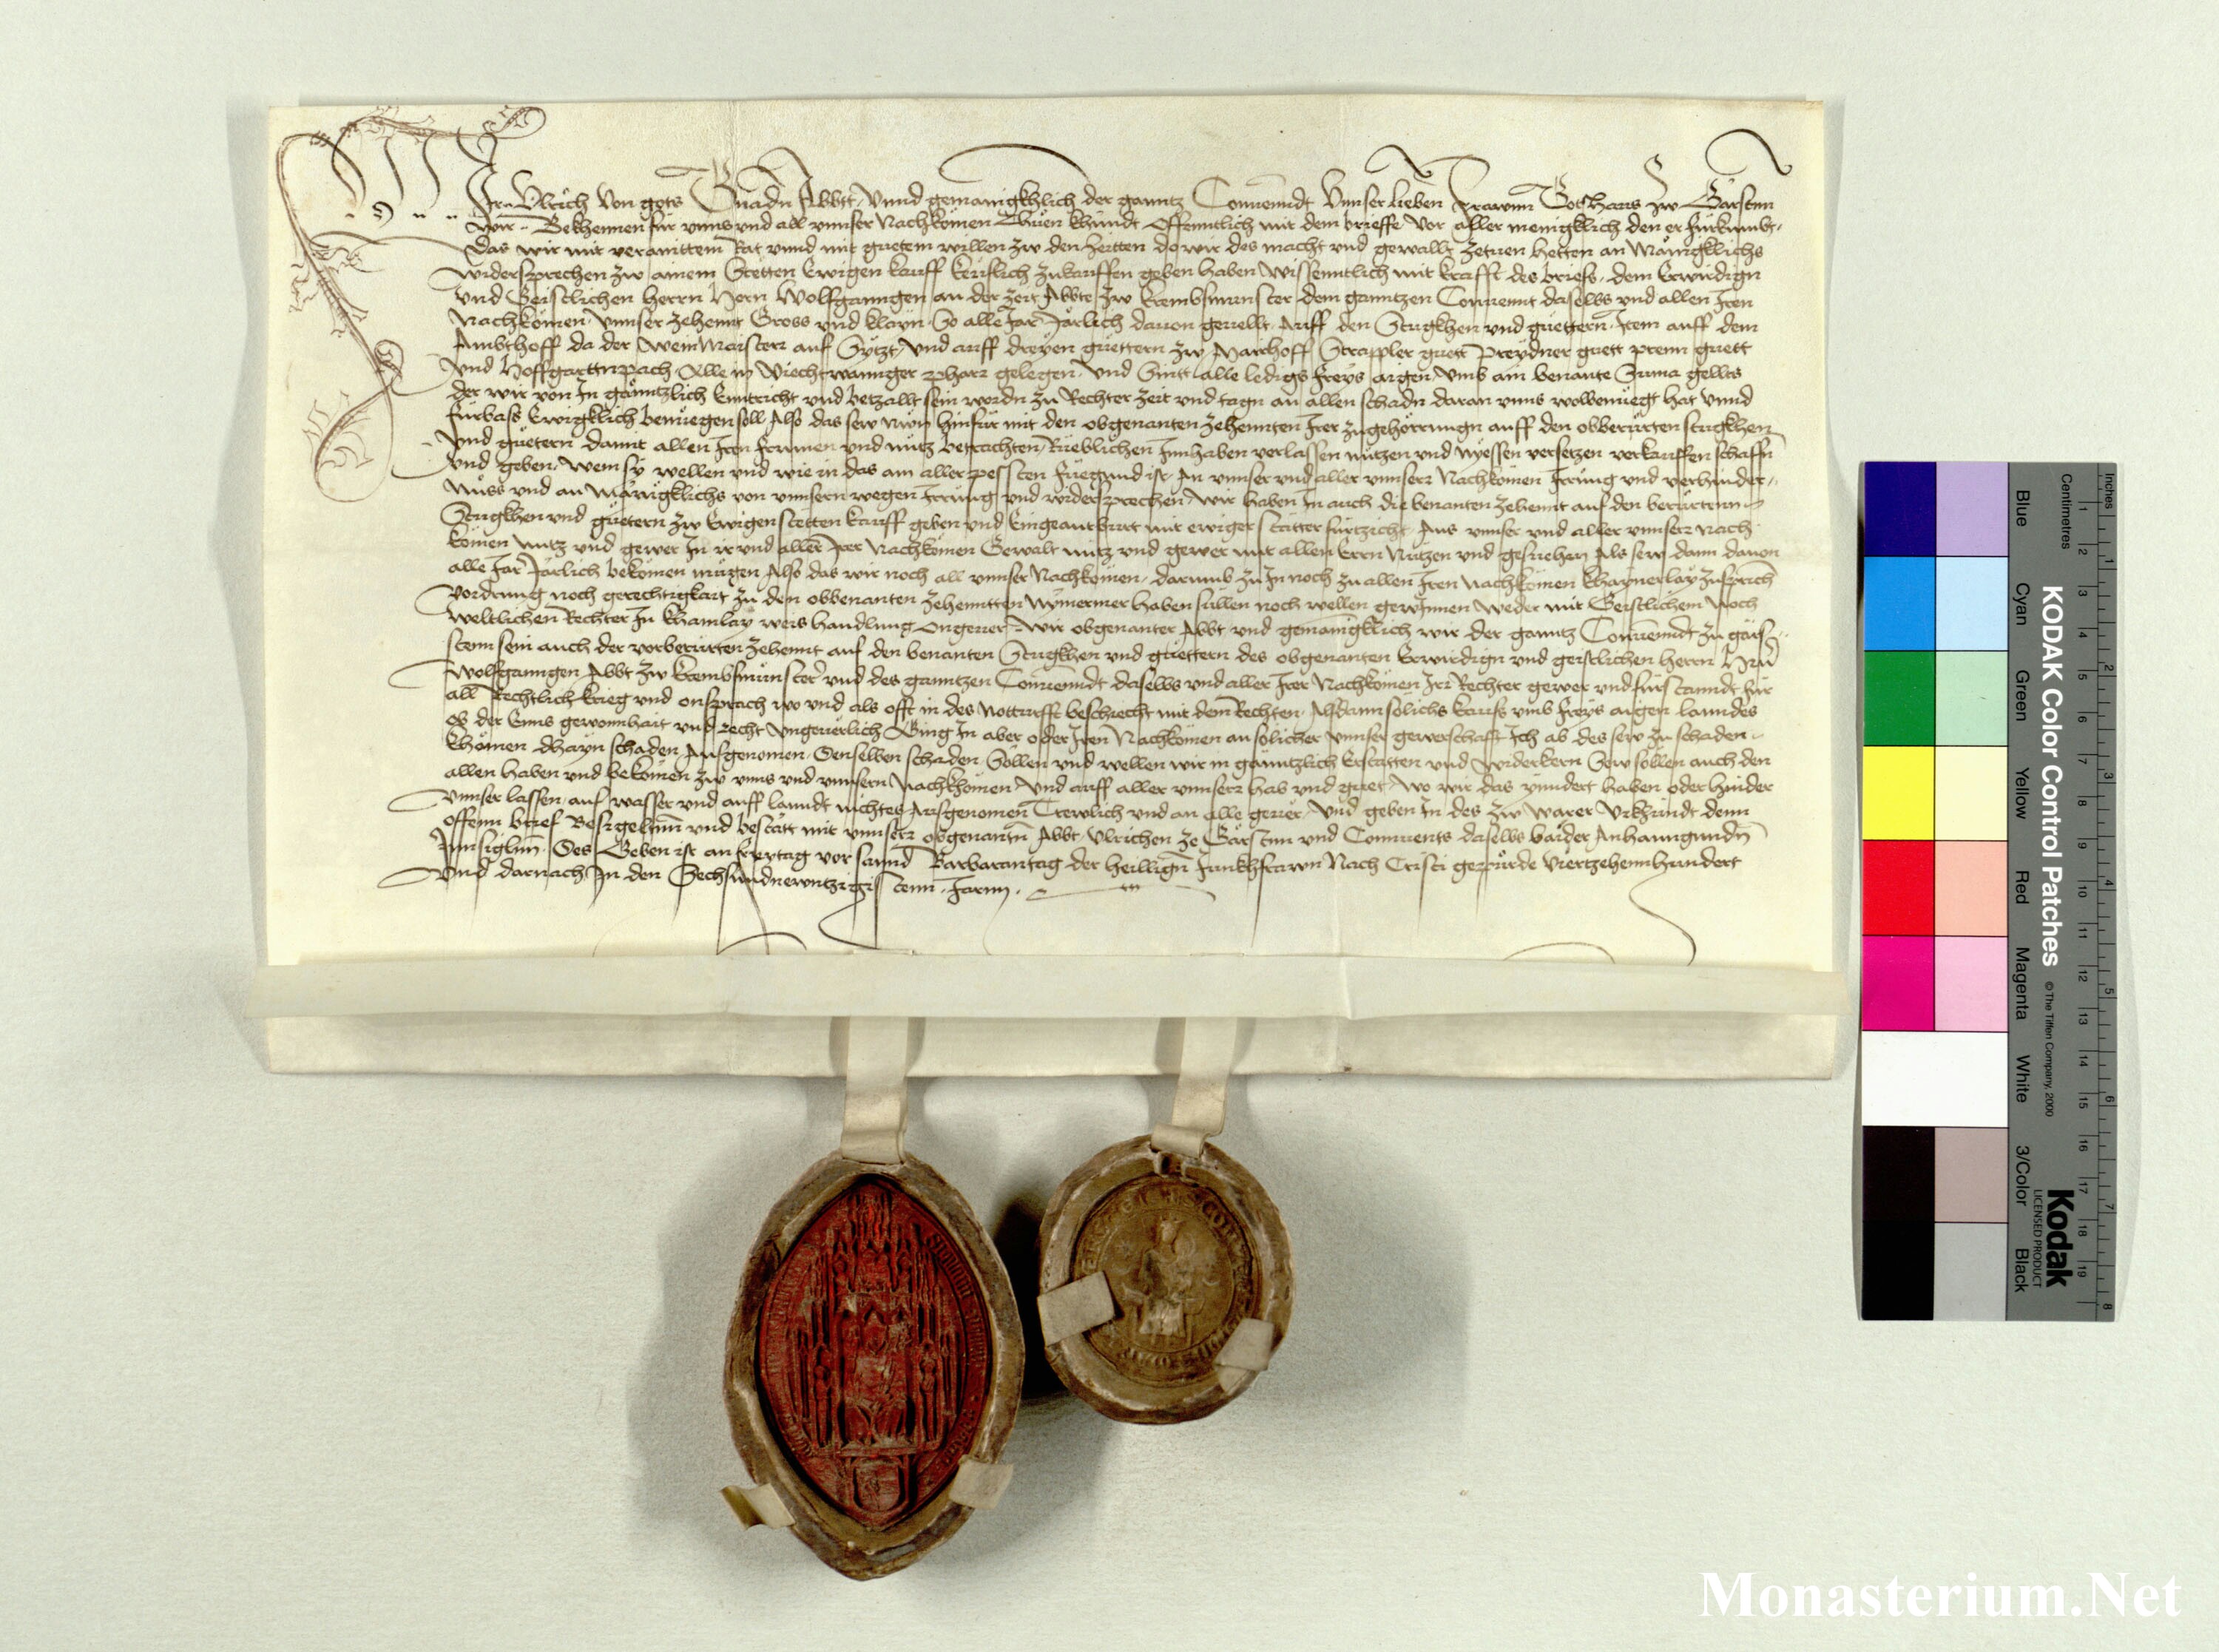 Wir Ulrich von gots Gnadn Abbtt Vnnd gemainigkhlich der ganntz Conuenndt Vnnser lieben Frawnn Gotshaus zw Gärstnn
Wir Bekhennen für vnns vnd all vnnser Nachkömen Thuen khundt Offenntlich mit dem brieffe vor aller menigklich den er fürkumbt
das wir mit veraintem Rat vnnd mit guetem willen zw den zeitten do wir des macht vnd gewallt zetuen hetten an Mänigklichs
widersprechen zw ainem Stetten Ewigen kauff keuflich zukauffen geben haben Wissenntlich mit krafft des briefs dem Erwirdign
vnd Geistlichen herrn Hern Wolfganngen an der zeit Abbte zw Krembsmunster dem ganntzen Conuennt daselbs vnd allen Iren
Nachkömen vnnser zehennt Gross vnd klayn So alle Jar Järlich dauon geuellt Auff den Stugkhen vnd guettern Item auff dem
Ambthoff da der WeinMaister auf Sytzt vnd auff dreyen guettern zw Mairhoff Strappler guett Preydner guett prenn guett
vnd Hoffgarttnpach Alle in Viechtwannger pharr gelegen Vnd Sintt alle ledigs freys aigen Vmb ain benante Suma gellts
der wir von In gänntzlich Enntricht vnd betzallt sein wordn zu Rechter zeit vnd tagn an allen schadn daran vnns wolbenuegt hat vnnd
fürbass Ewigklich benuegen soll Also das sew nwn hinfür mit den obgenanten zehennten Irer zugehörrungn auff den obberürten stugkhen
vnd guetern damit allen Iren frumen vnd nutz betrachten Rueblichen Innhaben verlassen nutzen vnd nyessen versetzen verkauffen schaffn
vnd geben wem sy wellen vnd wie in das am aller pessten fuegund ist An vnnser vnd aller vnnserr Nachkömen Irrung vnd verhinder
nuss vnd an Mänigklichs von vnnsern wegen Irrung vnd widersprechen wir haben In auch die benanten zehennt auf den berürtenn
Stugkhen vnd guetern zw Ewigen stetten kauff geben vnd Eingeantburt mit ewiger stätter fürtzicht Aus vnnser vnd aller vnnserr nach
kömen nutz vnd gewer In ir vnd aller Irer Nachkömen Gewalt nutz vnd gewer mit allen Ern Nützen vnd gesuehen Als sew dann dauon
alle Jar Järlich bekömen mügen Also das wir noch all vnnser Nachkömen darumb zu In noch zu allen Iren nachkömen khaynerlay zusprüch
vordrung noch gerechtigkait zu den obbenanten zehenntten Nymermer haben süllen noch wellen gewinnen weder mit Geistlichem Noch
weltlichen Rechten In khainlay weis handlung ongeuer Wir obgenanter Abbt vnd gemainigklich wir der ganntz Conuenndt zu gärs
stenn sein auch der vorberürten zehennt auf den benanten Stugkhen vnd guettern des obgenanten Erwirdign vnd geistlichen herrn Hrn
Wolfganngen Abbt zw Krembsmünster vnd des ganntzen Conuenndt daselbs vnd aller Irer Nachkömen Irr Rechter gewer vnd fürstanndt für
all Rechtlich krieg vnd onsprach wo vnd als offt in des Notturfft beschiecht mit dem Rechten Alsdann sölichs kaufs vmb freys aigen lanndes
ob der Enns gewonnhait vnd recht vngeuerlich Ging In aber oder Iren Nachkömen an sölicher vnnser gewerschafft Ich ab des sew zu schaden
khömen dhayn schaden Ausgenomen Denselben schaden Söllen vnd wellen wir in gänntzlich Erstatten vnd widerkern Sew söllen auch den
allen haben vnd bekömen zw vnns vnd vnnsern Nachkhömen vnd auff aller vnnserr hab vnd guet wo wir das ynndert haben oder hinder
vnnser lassen auf wasser vnd auff lanndt nichtes Ausgenomen Trewlich vnd an alle geuer Vnd geben In des zw warer Vrkhundt denn
offenn brief Besigeltnn vnd bestätt mit vnnserr obgenantn Abbt Vlrichen ze Gärstnn vnd Conuents daselbs baider Anhanngundn
Innsiglnn Des Geben ist an freytag vor sannd Barbarantag der heilligen Junkhfrawn Nach Cristi gepürde Viertzehennhundert
Vnd darnach In den Sechsundnewntzigistenn Jarnn
KODAK Color Control Patches
© The Tiffen Company, 2000
Kodak
LICENSED PRODUCT
Inches
Centimetres
1 2 3 4 5 6 7 8
1 2 3 4 5 6 7 8 9 10 11 12 13 14 15 16 17 18 19
Blue
Cyan
Green
Yellow
Red
Magenta
White
3/Color
Black
Monasterium.Net